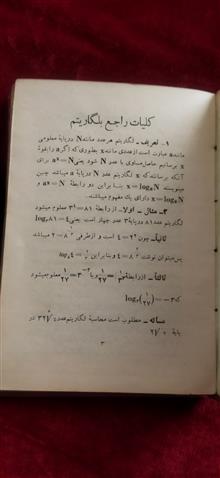 کلیات راجع بلگاریتم
۱ـ تعریف ـ لگاریتم هر عدد مانند N درپایهٔ معلومی
مانند a عبارت است از عددی مانند x بطوری که اگر a را بقوهٔ
x برسانیم حاصل مساوی با عدد N شود یعنی aˣ = N برای
آنکه برسانند که x لگاریتم عدد N درپایهٔ a میباشد چنین
مینویسند x = logₐN بنا براین دو رابطهٔ aˣ = N و
x = logₐN دارای یک مفهوم میباشند.
۲ـ مثال ـ اولاـ از رابطهٔ ۳⁴ = ۸۱ معلوم میشود
لگاریتم عدد ۸۱ درپایهٔ ۳ عدد چهار است یعنی log₃۸۱ = ٤
ثانیاً ـ چون ۲² = ٤ است و از طرفی
میباشد
پس میتوان نوشت
و بنا براین
ثالثاً ـ از رابطهٔ
یا ۳⁻³ = ۱/۲۷ معلوم میشود
که log₃(۱/۲۷) = −۳
مسأله ـ مطلوب است محاسبهٔ لگاریتم عدد
در
پایهٔ
۳